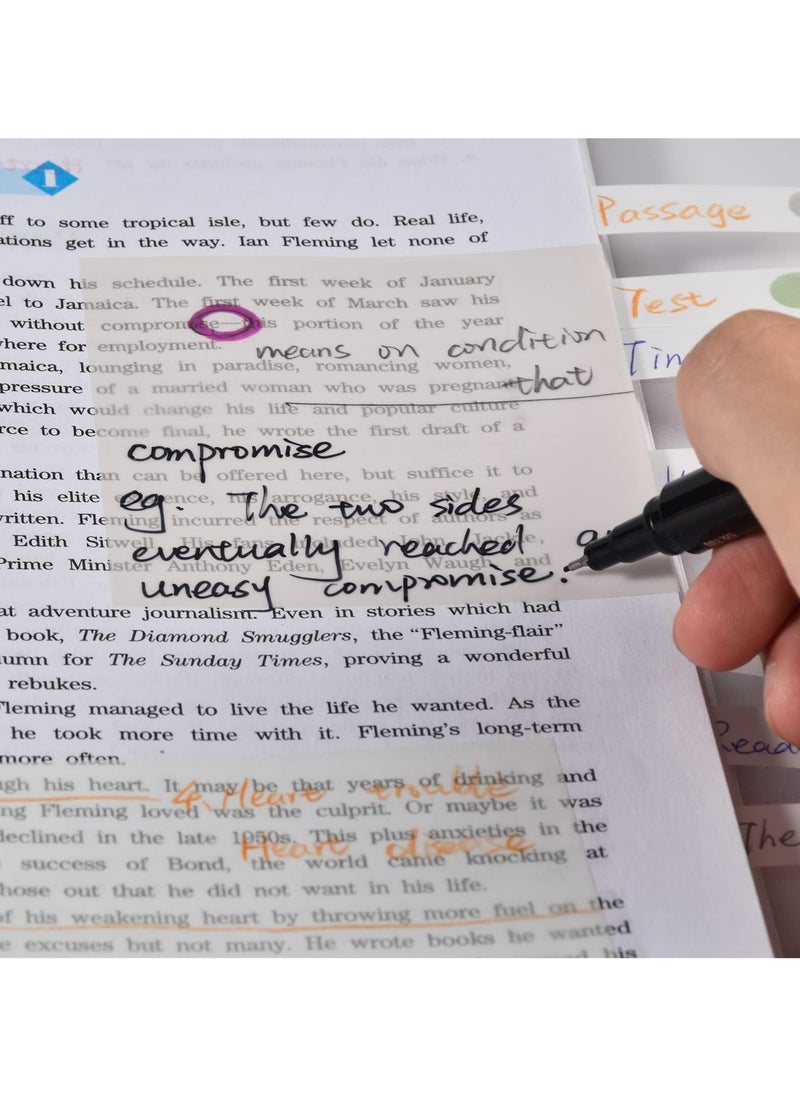 I
ff to some tropical isle, but few do. Real life,
ations get in the way. Ian Fleming let none of
down his schedule. The first week of January
el to Jamaica. The first week of March saw his
without compromise—this portion of the year
where for employment.
means on condition
maica, lounging in paradise, romancing women,
pressure of a married woman who was pregnant
that
which would change his life and popular culture
rce to become final, he wrote the first draft of a
compromise
nation than can be offered here, but suffice it to
his elite arrogance, his style, and
eg. The two sides
written. Fleming incurred the respect of authors as
Edith Sitwell. His fans included John
eventually reached an
Prime Minister Anthony Eden, Evelyn Waugh and
uneasy compromise.
at adventure journalism. Even in stories which had
book, The Diamond Smugglers, the “Fleming-flair”
umn for The Sunday Times, proving a wonderful
rebukes.
Fleming managed to live the life he wanted. As the
he took more time with it. Fleming's long-term
more often.
gh his heart. It may be that years of drinking and
4. Heart trouble
ng Fleming loved was the culprit. Or maybe it was
declined in the late 1950s. This plus anxieties in the
Heart disease
success of Bond, the world came knocking at
hose out that he did not want in his life.
of his weakening heart by throwing more fuel on the
e excuses but not many. He wrote books he wanted
his
Passage
Test
Tim
Read
The